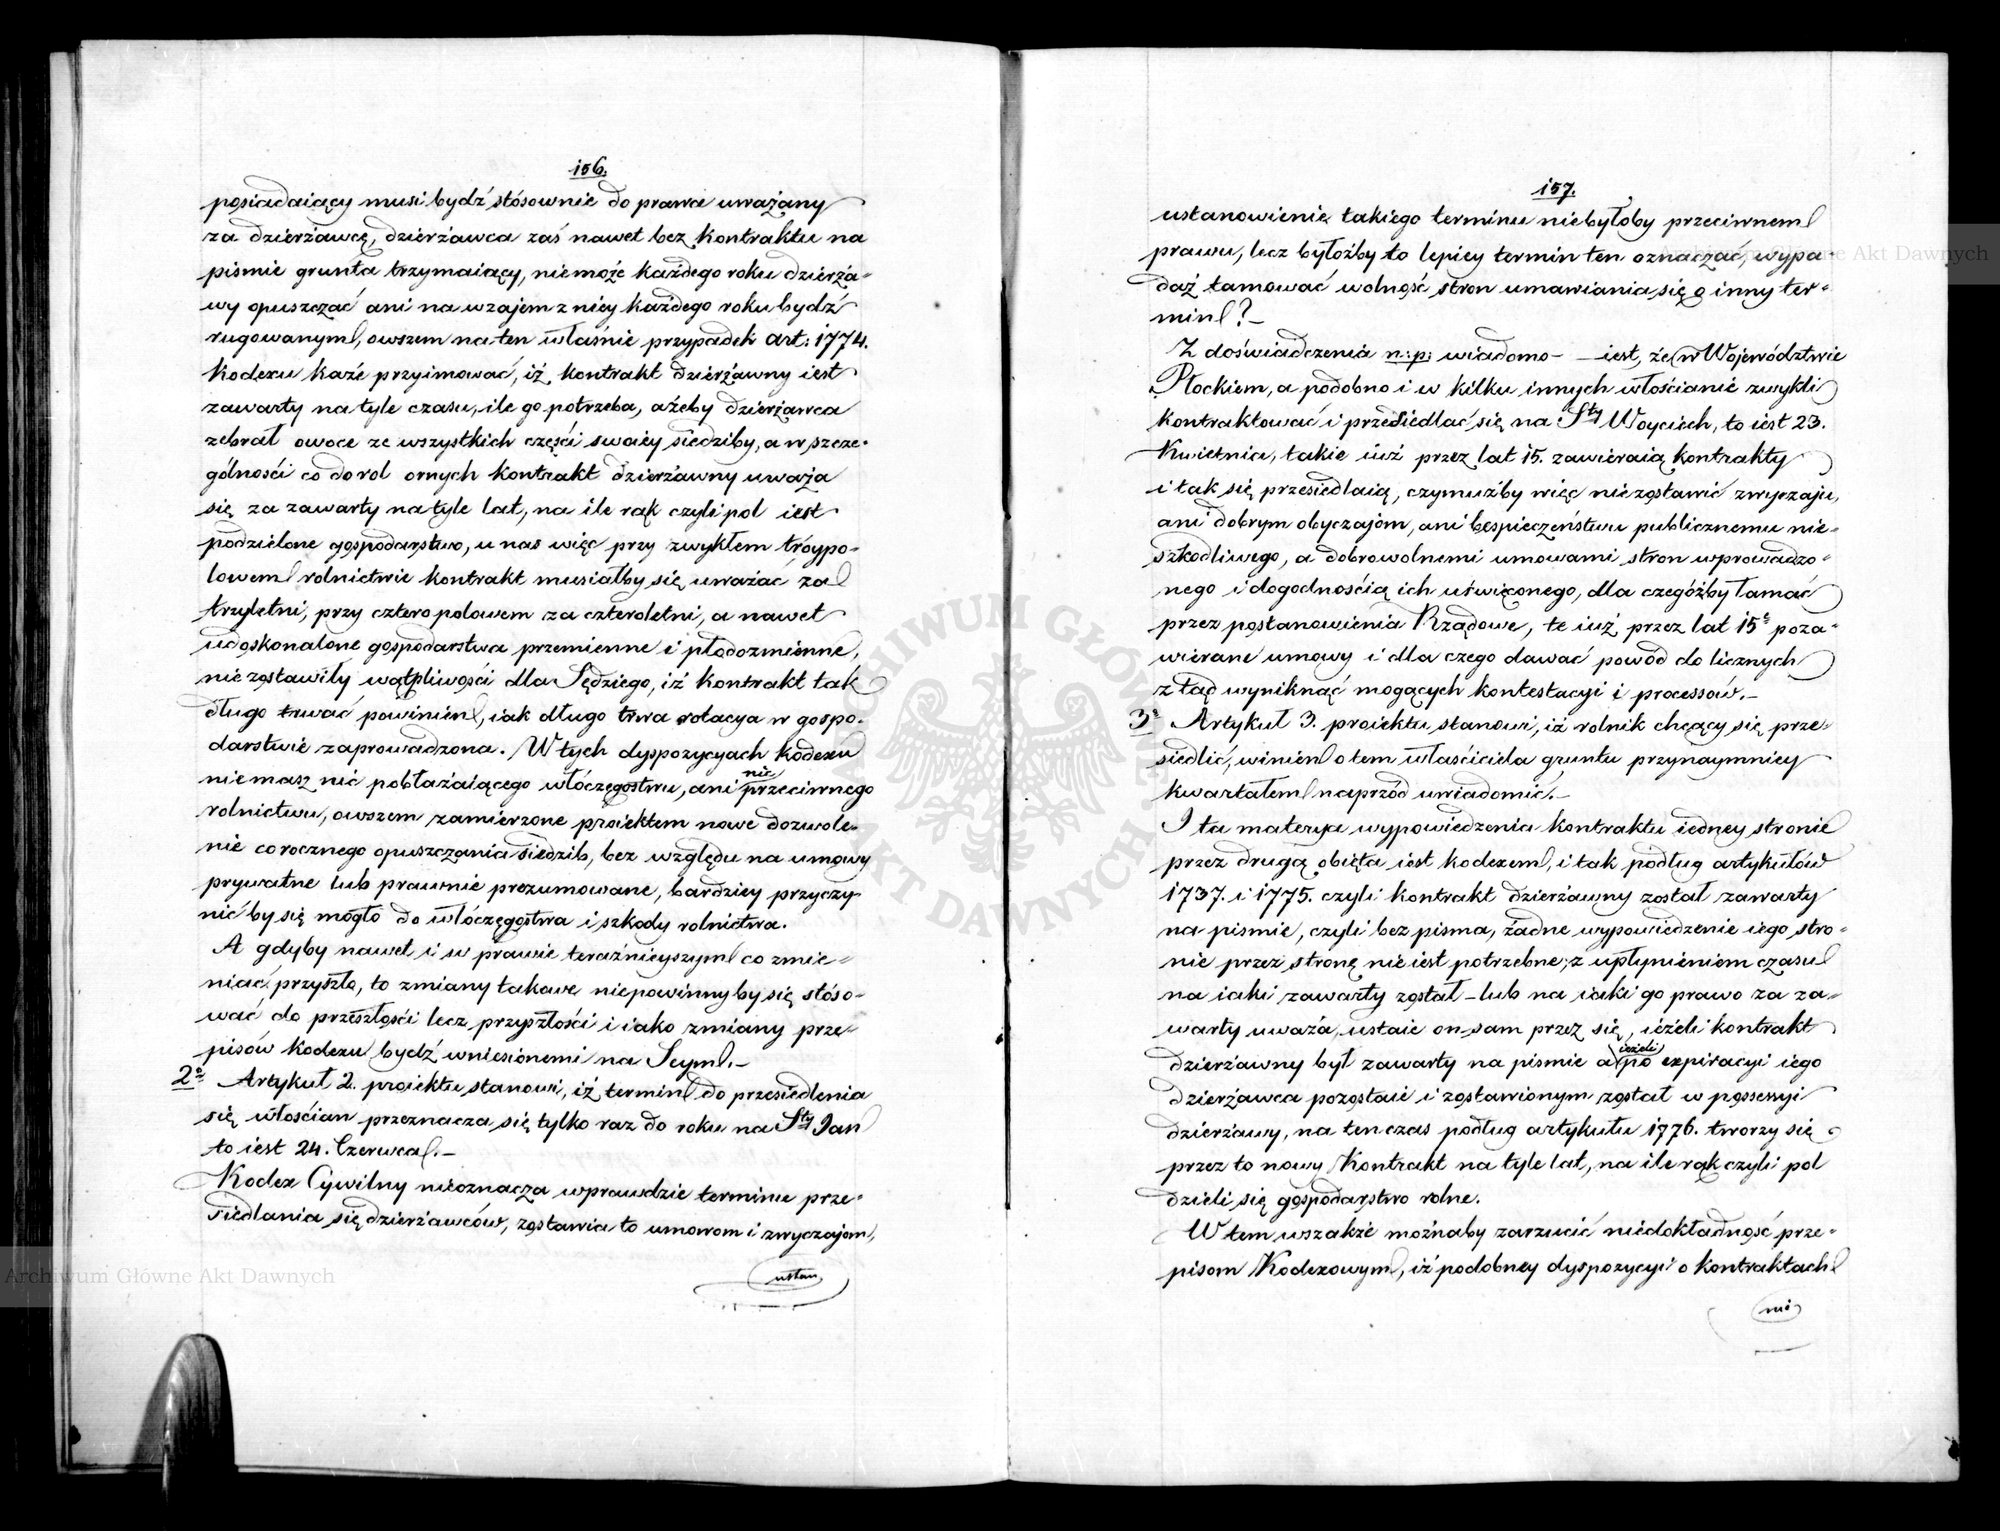 156.
posiadaiący musi bydź stósownie do prawa uważany
za dzierżawcę, dzierżawca zaś nawet bez kontraktu na
piśmie grunta trzymaiący, niemoże każdego roku dzierża-
wy opuszczać ani na wzajem z niey każdego roku bydź
rugowanym, owszem na ten właśnie przypadek art: 1774.
Kodexu każe przyimować, iż kontrakt dzierżawny iest
zawarty na tyle czasu, ile go potrzeba, ażeby dzierżawca
zebrał owoce ze wszystkich części swoiey siedziby, a w szcze-
gólności co do rol ornych kontrakt dzierżawny uważa
się za zawarty na tyle lat, na ile rąk czyli pol iest
podzielone gospodarstwo, u nas więc przy zwykłem tróypo-
lowem rolnictwie kontrakt musiałby się uważać za
trzyletni, przy czteropolowem za czteroletni, a nawet
udoskonalone gospodarstwa przemienne i płodozmienne,
nie zostawiły wątpliwości dla Sędziego, iż kontrakt tak
długo trwać powinien, iak długo trwa rotacya w gospo-
darstwie zaprowadzona. W tych dyspozycyach kodexu
niemasz nic pobłażaiącego włóczęgostwu, ani nic przeciwnego
rolnictwu, owszem zamierzone proiektem nowe dozwole-
nie corocznego opuszczania siedzib, bez względu na umowy
prywatne lub prawnie prezumowane, bardziey przyczy-
nićby się mogło do włóczęgostwa i szkody rolnictwa.
A gdyby nawet i w prawie teraźnieyszym co zmie-
niać przyszło, to zmiany takowe niepowinnyby się stóso-
wać do przeszłości lecz przyszłości i iako zmiany prze-
pisów kodexu bydź wniesionemi na Seym.-
2e Artykuł 2. proiektu stanowi, iż termin do przesiedlenia
się włościan przeznacza się tylko raz do roku na Sty Jan
to iest 24. Czerwca.-
Kodex Cywilny nieoznacza wprawdzie terminu prze-
siedlania się dzierżawców, zostawia to umowom i zwyczajom,
ustan
157.
ustanowienie takiego terminu niebyłoby przeciwnem
prawu, lecz byłoźby to lepiey termin ten oznaczać, wypa-
daż tamować wolność stron umawiania się o inny ter-
min?-
Z doświadczenia n:p: wiadomo- -iest, że w Województwie
Płockiem, a podobno i w kilku innych włościanie zwykli
kontraktować i przesiedlać się na Sty Woyciech, to iest 23.
Kwietnia, takie iuż przez lat 15. zawieraią kontrakty
i tak się przesiedlaią, czymużby więc niezostawić zwyczaju,
ani dobrym obyczajom, ani bespieczeństwu publicznemu nie-
szkodliwego, a dobrowolnemi umowami stron wprowadzo-
nego i dogodnością ich uświęconego, dla czegóżby łamać
przez postanowienia Rządowe, te iuż przez lat 15e poza-
wierane umowy i dla czego dawać powód do licznych
ztąd wyniknąć mogących kontestacyi i processów.-
3e Artykuł 3. proiektu stanowi, iż rolnik chcący się prze-
siedlić, winien o tem właściciela gruntu przynaymniey
kwartałem naprzód uwiadomić.-
I ta materya wypowiedzenia kontraktu iedney stronie
przez drugą obięta iest kodexem, i tak podług artykułów
1737. i 1775. czyli kontrakt dzierżawny został zawarty
na piśmie, czyli bez pisma, żadne wypowiedzenie iego stro-
nie przez stronę nie iest potrzebne; z upłynieniem czasu
na iaki zawarty został - lub na iaki go prawo za za-
warty uważa, ustaie on sam przez się, ieżeli kontrakt
dzierżawny był zawarty na piśmie a ieżeli po expiracyi iego
dzierżawca pozostaie i zostawionym został w possessyi
dzierżawy, na ten czas podług artykułu 1776. tworzy się
przez to nowy Kontrakt na tyle lat, na ile rąk czyli pol
dzieli się gospodarstwo rolne.
W tem wszakże możnaby zarzucić niedokładność prze-
pisom Kodexowym, iż podobney dyspozycyi o kontraktach
nie
Archiwum Główne Akt Dawnych
Archiwum Główne Akt Dawnych
ARCHIWUM GŁÓWNE AKT DAWNYCH